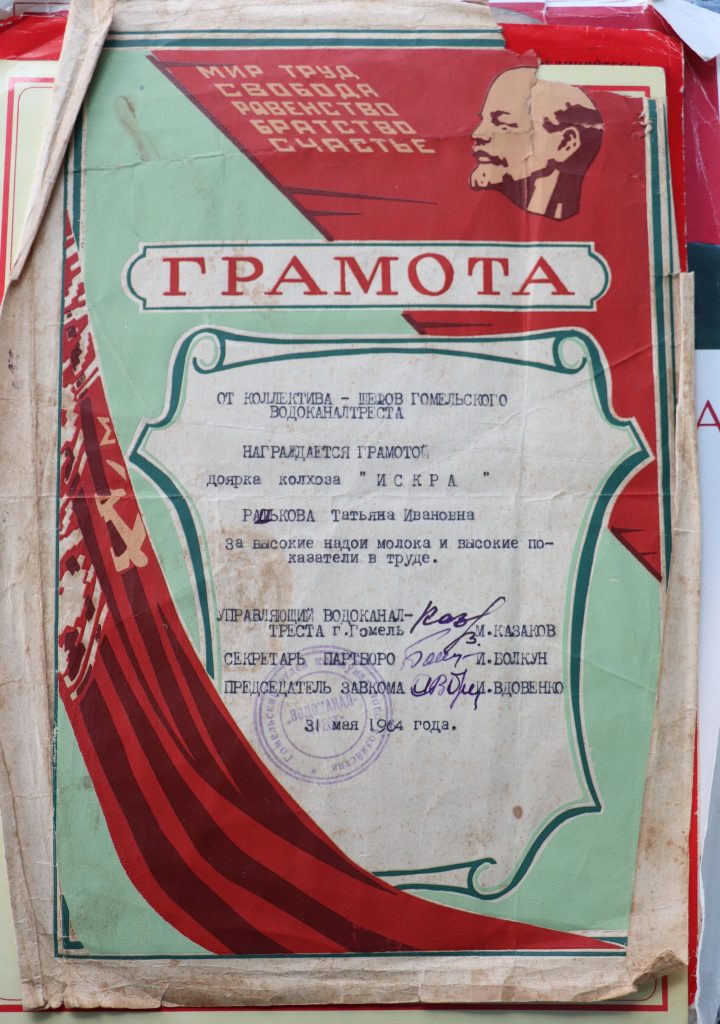 МИР ТРУД
СВОБОДА
РАВЕНСТВО
БРАТСТВО
СЧАСТЬЕ
ГРАМОТА
ОТ КОЛЛЕКТИВА - ШЕФОВ ГОМЕЛЬСКОГО
ВОДОКАНАЛТРЕСТА
НАГРАЖДАЕТСЯ ГРАМОТОЙ
доярка колхоза " И С К Р А "
РАДЬКОВА Татьяна Ивановна
За высокие надои молока и высокие по-
казатели в труде.
УПРАВЛЯЮЩИЙ ВОДОКАНАЛ-
ТРЕСТА г.Гомель З.М.КАЗАКОВ
СЕКРЕТАРЬ ПАРТБЮРО И.БОЛКУН
ПРЕДСЕДАТЕЛЬ ЗАВКОМА И.ВДОВЕНКО
31 мая 1964 года.